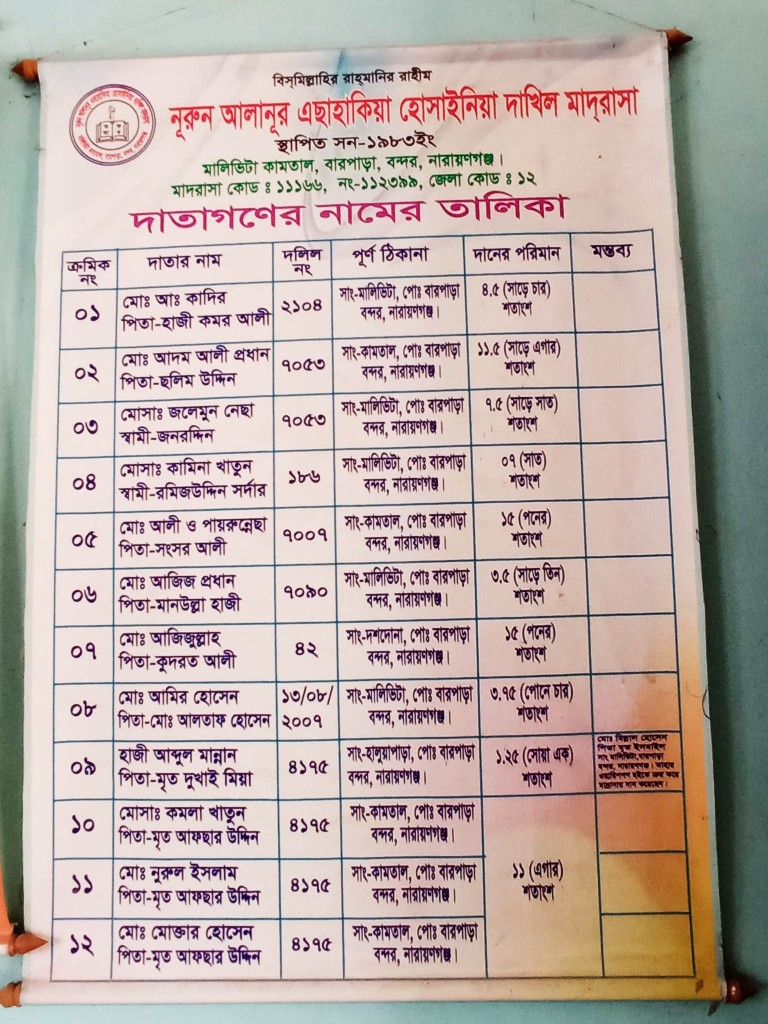 বিস্‌মিল্লাহির রাহ্‌মানির রাহীম
নূরুন আলানূর এছাহাকিয়া হোসাইনিয়া দাখিল মাদ্‌রাসা
স্থাপিত সন-১৯৮৩ইং
মালিভিটা কামতাল, বারপাড়া, বন্দর, নারায়ণগঞ্জ।
মাদরাসা কোড ঃ ১১১৬৬, নং-১১২৩৯৯, জেলা কোড ঃ ১২
দাতাগণের নামের তালিকা
ক্রমিক নং দাতার নাম দলিল নং পূর্ণ ঠিকানা দানের পরিমান মন্তব্য
০১ মোঃ আঃ কাদির ২১০৪ সাং-মালিভিটা, পোঃ বারপাড়া ৪.৫ (সাড়ে চার)
পিতা-হাজী কমর আলী বন্দর, নারায়ণগঞ্জ। শতাংশ
০২ মোঃ আদম আলী প্রধান ৭০৫৩ সাং-কামতাল, পোঃ বারপাড়া ১১.৫ (সাড়ে এগার)
পিতা-ছলিম উদ্দিন বন্দর, নারায়ণগঞ্জ। শতাংশ
০৩ মোসাঃ জলেমুন নেছা ৭০৫৩ সাং-মালিভিটা, পোঃ বারপাড়া ৭.৫ (সাড়ে সাত)
স্বামী-জনরদ্দিন বন্দর, নারায়ণগঞ্জ। শতাংশ
০৪ মোসাঃ কামিনা খাতুন ১৮৬ সাং-মালিভিটা, পোঃ বারপাড়া ০৭ (সাত)
স্বামী-রমিজউদ্দিন সর্দার বন্দর, নারায়ণগঞ্জ। শতাংশ
০৫ মোঃ আলী ও পায়রুন্নেছা ৭০০৭ সাং-কামতাল, পোঃ বারপাড়া ১৫ (পনের)
পিতা-সংসর আলী বন্দর, নারায়ণগঞ্জ। শতাংশ
০৬ মোঃ আজিজ প্রধান ৭০৯০ সাং-মালিভিটা, পোঃ বারপাড়া ৩.৫ (সাড়ে তিন)
পিতা-মানউল্লা হাজী বন্দর, নারায়ণগঞ্জ। শতাংশ
০৭ মোঃ আজিজুল্লাহ ৪২ সাং-দশদোনা, পোঃ বারপাড়া ১৫ (পনের)
পিতা-কুদরত আলী বন্দর, নারায়ণগঞ্জ। শতাংশ
০৮ মোঃ আমির হোসেন ১৩/০৮/ সাং-মালিভিটা, পোঃ বারপাড়া ৩.৭৫ (পোনে চার)
পিতা-মোঃ আলতাফ হোসেন ২০০৭ বন্দর, নারায়ণগঞ্জ। শতাংশ
০৯ হাজী আব্দুল মান্নান ৪১৭৫ সাং-হালুয়াপাড়া, পোঃ বারপাড়া ১.২৫ (সোয়া এক)
পিতা-মৃত দুখাই মিয়া বন্দর, নারায়ণগঞ্জ। শতাংশ
১০ মোসাঃ কমলা খাতুন ৪১৭৫ সাং-কামতাল, পোঃ বারপাড়া
পিতা-মৃত আফছার উদ্দিন বন্দর, নারায়ণগঞ্জ।
১১ মোঃ নুরুল ইসলাম ৪১৭৫ সাং-কামতাল, পোঃ বারপাড়া ১১ (এগার)
পিতা-মৃত আফছার উদ্দিন বন্দর, নারায়ণগঞ্জ। শতাংশ
১২ মোঃ মোক্তার হোসেন ৪১৭৫ সাং-কামতাল, পোঃ বারপাড়া
পিতা-মৃত আফছার উদ্দিন বন্দর, নারায়ণগঞ্জ।